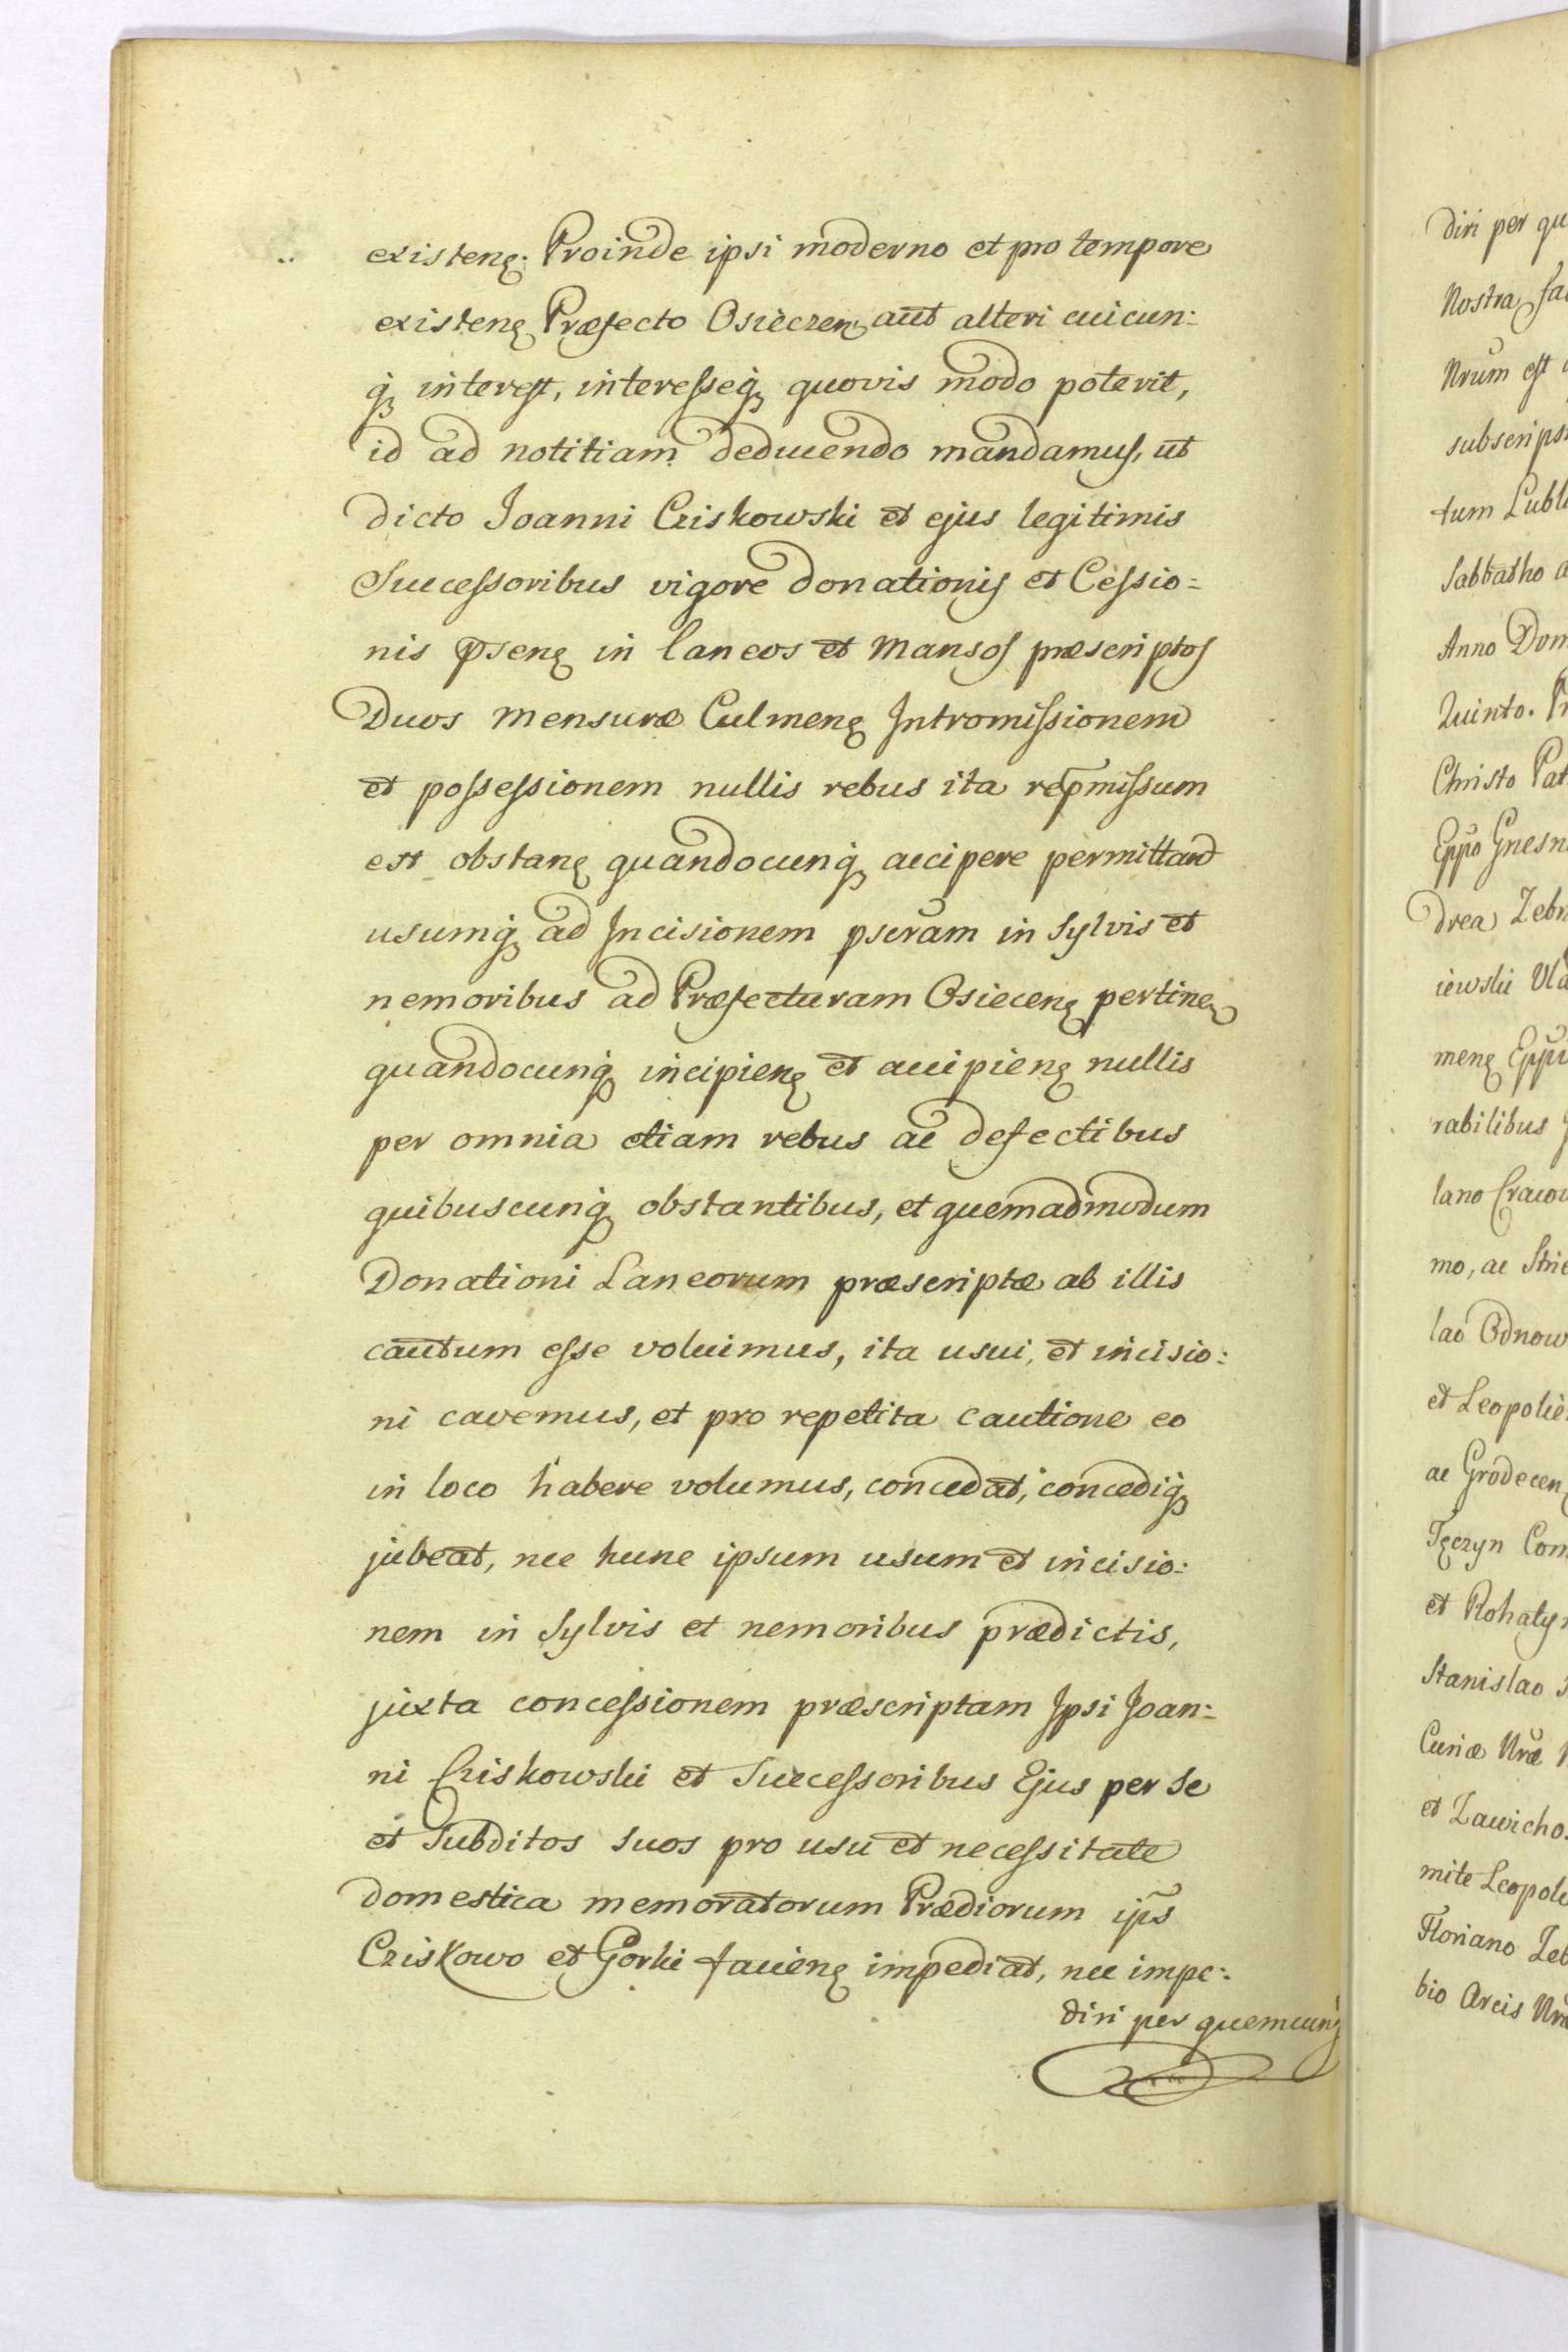 existenꝫ. Proinde ipsi moderno et pro tempore
existenꝫ Præfecto Osieczenꝫ aut alteri cuicun:
qꝫ interest, interesseqꝫ quovis modo poterit,
id ad notitiam deducendo mandamus, ut
dicto Joanni Cziskowski et ejus legitimis
Successoribus vigore donationis et Cessio=
nis pscnꝫ in laneos et Mansos præscriptos
Duos Mensuræ Culmenꝫ Intromissionem
et possessionem nullis rebus ita repmissum
est obstanꝫ quandocunqꝫ accipere permittand
usumqꝫ ad Incisionem pseram in Sylvis et
nemoribus ad Præfecturam Osiecenꝫ pertinenꝫ
quandocunqꝫ incipienꝫ et accipienꝫ nullis
per omnia etiam rebus ac defectibus
quibuscunqꝫ obstantibus, et quemadmodum
Donationi Laneorum præscriptæ ab illis
cautum esse voluimus, ita usui, et incisio:
ni cavemus, et pro repetita cautione eo
in loco habere volumus, concedat, concediqꝫ
jubeat, nec hunc ipsum usum et incisio:
nem in Sylvis et nemoribus prædictis,
juxta concessionem præscriptam Ipsi Joan:
ni Cziskowski et Successoribus Ejus per se
et Subditos suos pro usu et necessitate
domestica memoratorum Prædiorum ips
Cziskowo et Gorki facienꝫ impediat, nec impe:
diri per quemcunqꝫ
diri per qu
Nostra fa
Nrum est
subscrips
tum Lubl
Sabbatho a
Anno Dom
Quinto. Pr
Christo Pat
Eppo Gnesn
drea Zebr
iewski Vla
menꝫ Eppu
rabilibus J
lano Cracov
mo, ac Stri
lao Odnow
et Leopolie
ac Grodecen
Tęczyn Com
et Rohatyn
Stanislao
Curiæ Nræ
et Zawicho
mite Leopoli
Floriano Zeb
bio Arcis Nræ